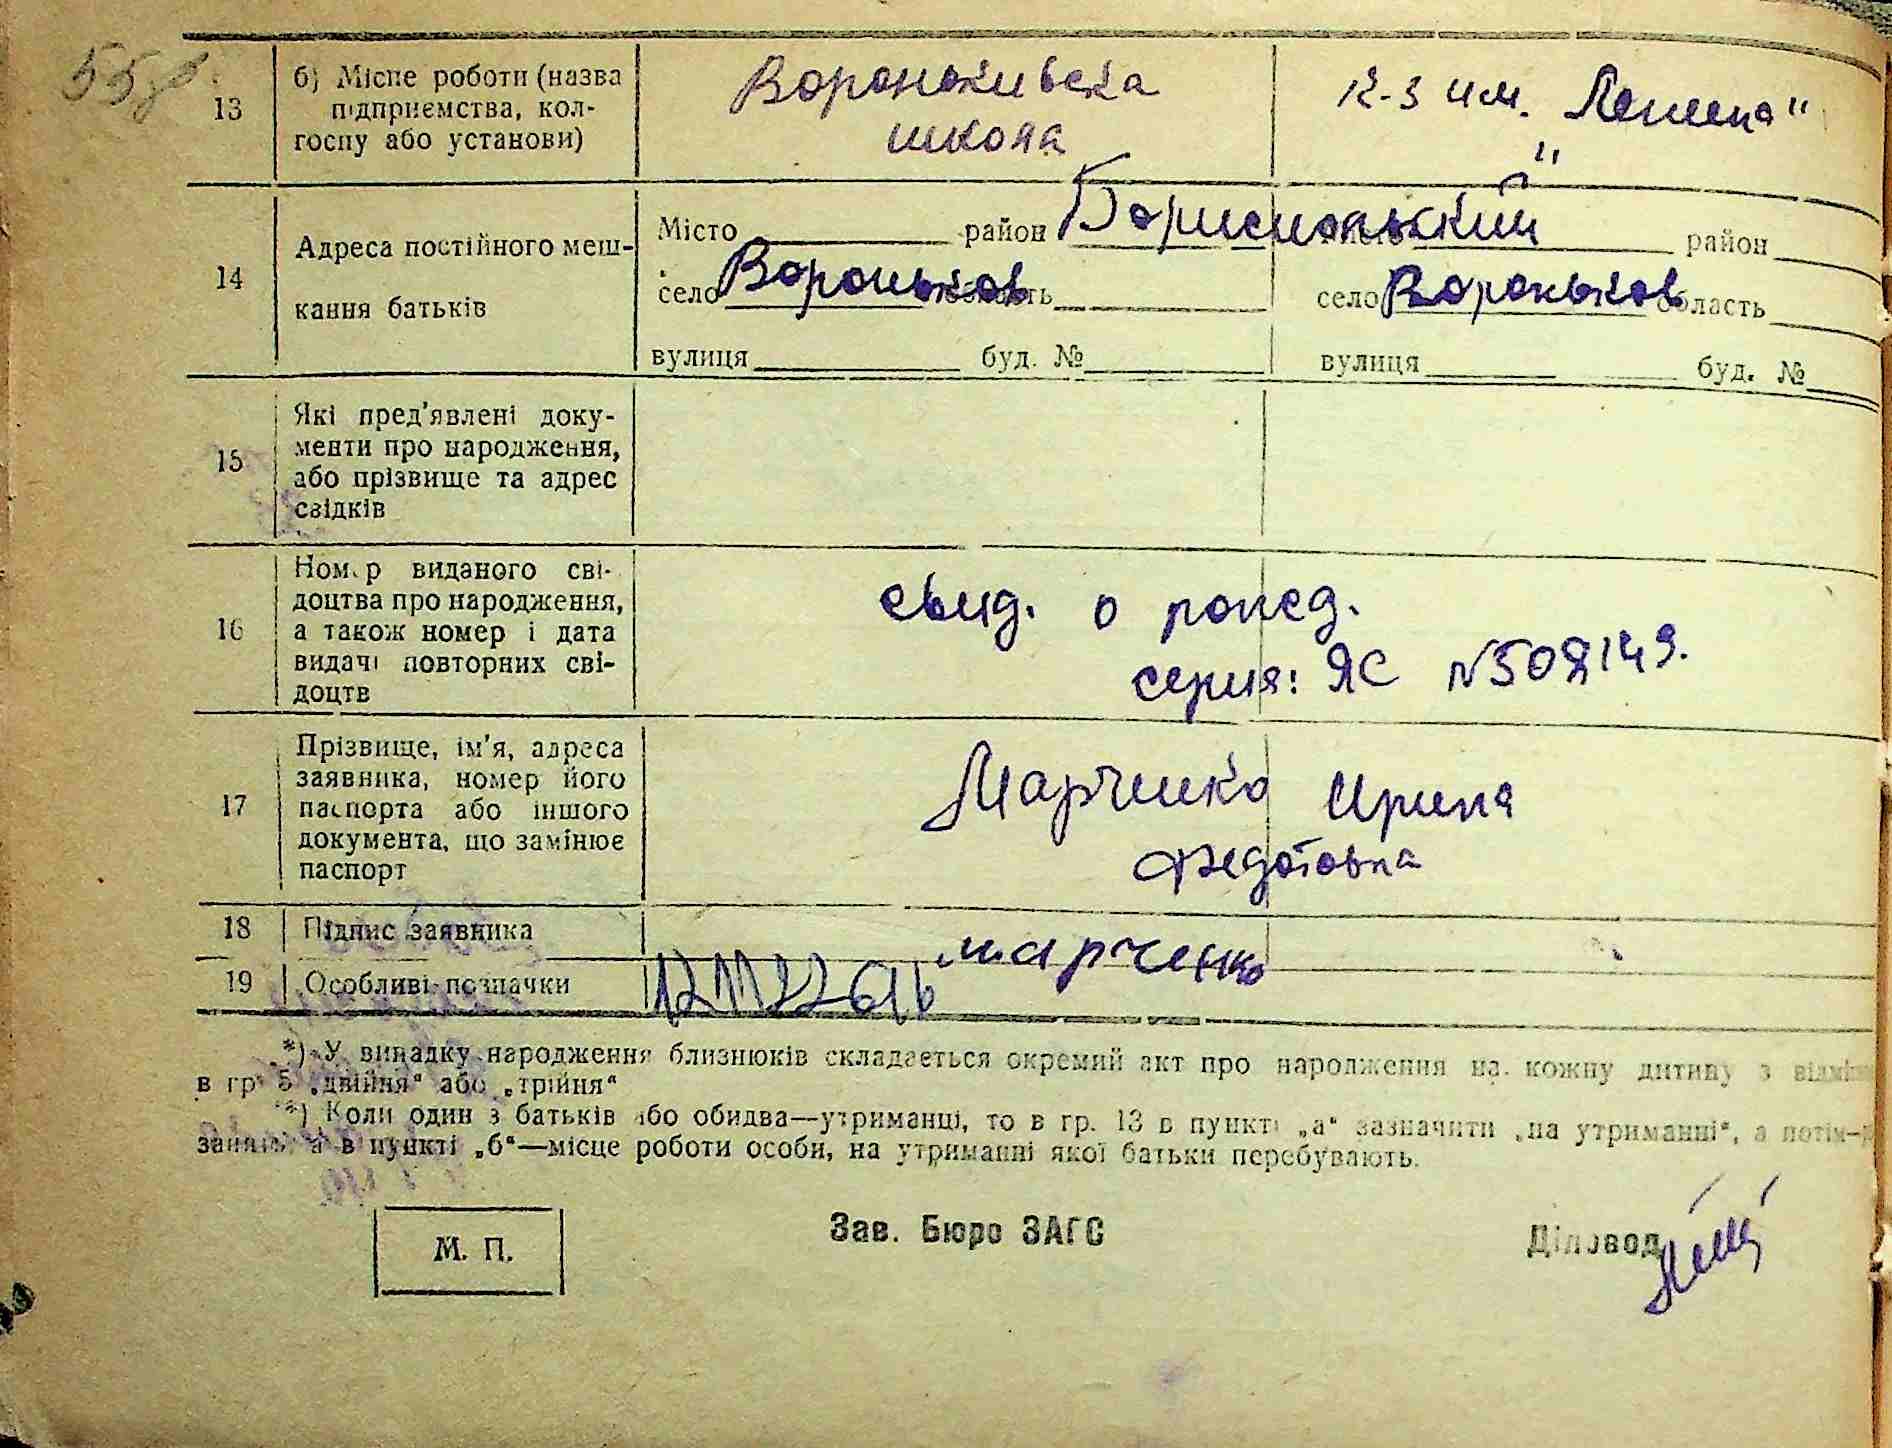 13
б) Місце роботи (назва
підприємства, кол-
госпу або установи)
Вороньківська
школа
к-з им. Ленина"
"
14
Адреса постійного меш-
кання батьків
Місто район Бориспольский район
село Вороньков область село Вороньков область
вулиця буд. № вулиця буд. №
15
Які пред'явлені доку-
менти про народження,
або прізвище та адрес
свідків
16
Номер виданого сві-
доцтва про народження,
а також номер і дата
видачі повторних сві-
доцтв
свид. о рожд.
серия: ЯС №508149.
17
Прізвище, ім'я, адреса
заявника, номер його
паспорта або іншого
документа, що замінює
паспорт
Марченко Ирина
Федотовна
18 Підпис заявника марченко
19 Особливі позначки
*) У випадку народження близнюків складається окремий акт про народження на кожну дитину з
в гр 5 „двійня“ або „трійня“
**) Коли один з батьків або обидва—утриманці, то в гр. 13 в пункті „а“ зазначити „на утриманні“, а потім—
а в пункті „б“—місце роботи особи, на утриманні якої батьки перебувають.
М. П.
Зав. Бюро ЗАГС
Діловод